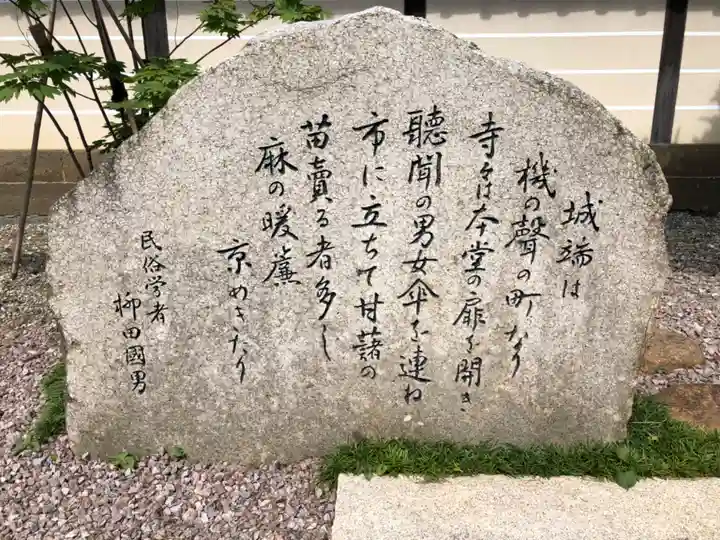 城端は
機の聲の町なり
寺々は本堂の扉を開き
聽聞の男女傘を連ね
市に立ちて甘藷の
苗賣る者多し
麻の暖簾
京めきたり
民俗学者
柳田國男